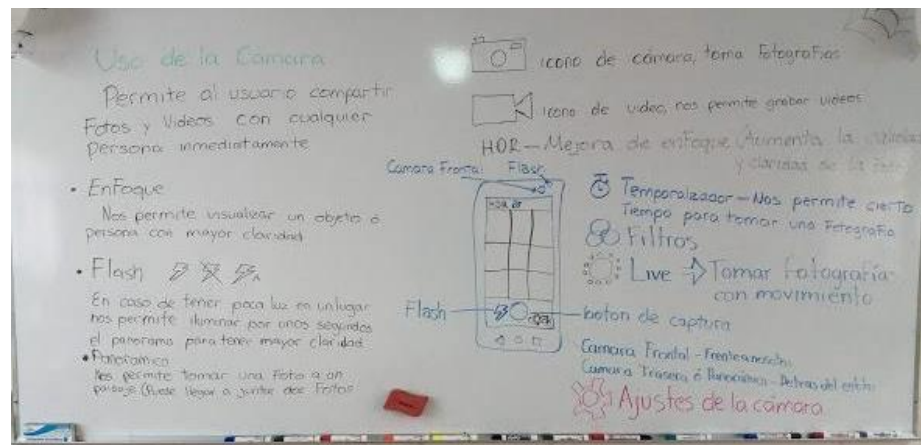 Uso de la Cámara
Permite al usuario compartir
Fotos y Videos con cualquier
persona inmediatamente
• Enfoque
Nos permite visualizar un objeto ó
persona con mayor claridad
• Flash
En caso de tener poca luz en un lugar
nos permite iluminar por unos segundos
el panorama para tener mayor claridad
• Panoramica
Nos permite tomar una Foto a un
paisaje (Puede llegar a juntar dos Fotos
icono de cámara, toma Fotografias
icono de video, nos permite grabar videos
HDR - Mejora de enfoque (Aumenta la
y claridad de la foto)
Camara Frontal
Flash
HDR
Flash
boton de captura
Temporalizador - Nos permite cierto
Tiempo para tomar una Fotografia
Filtros
Live → Tomar Fotografia
con movimiento
Camara Frontal - Frente
Camara Trasera ó Panoramica - Detras del
Ajustes de la cámara